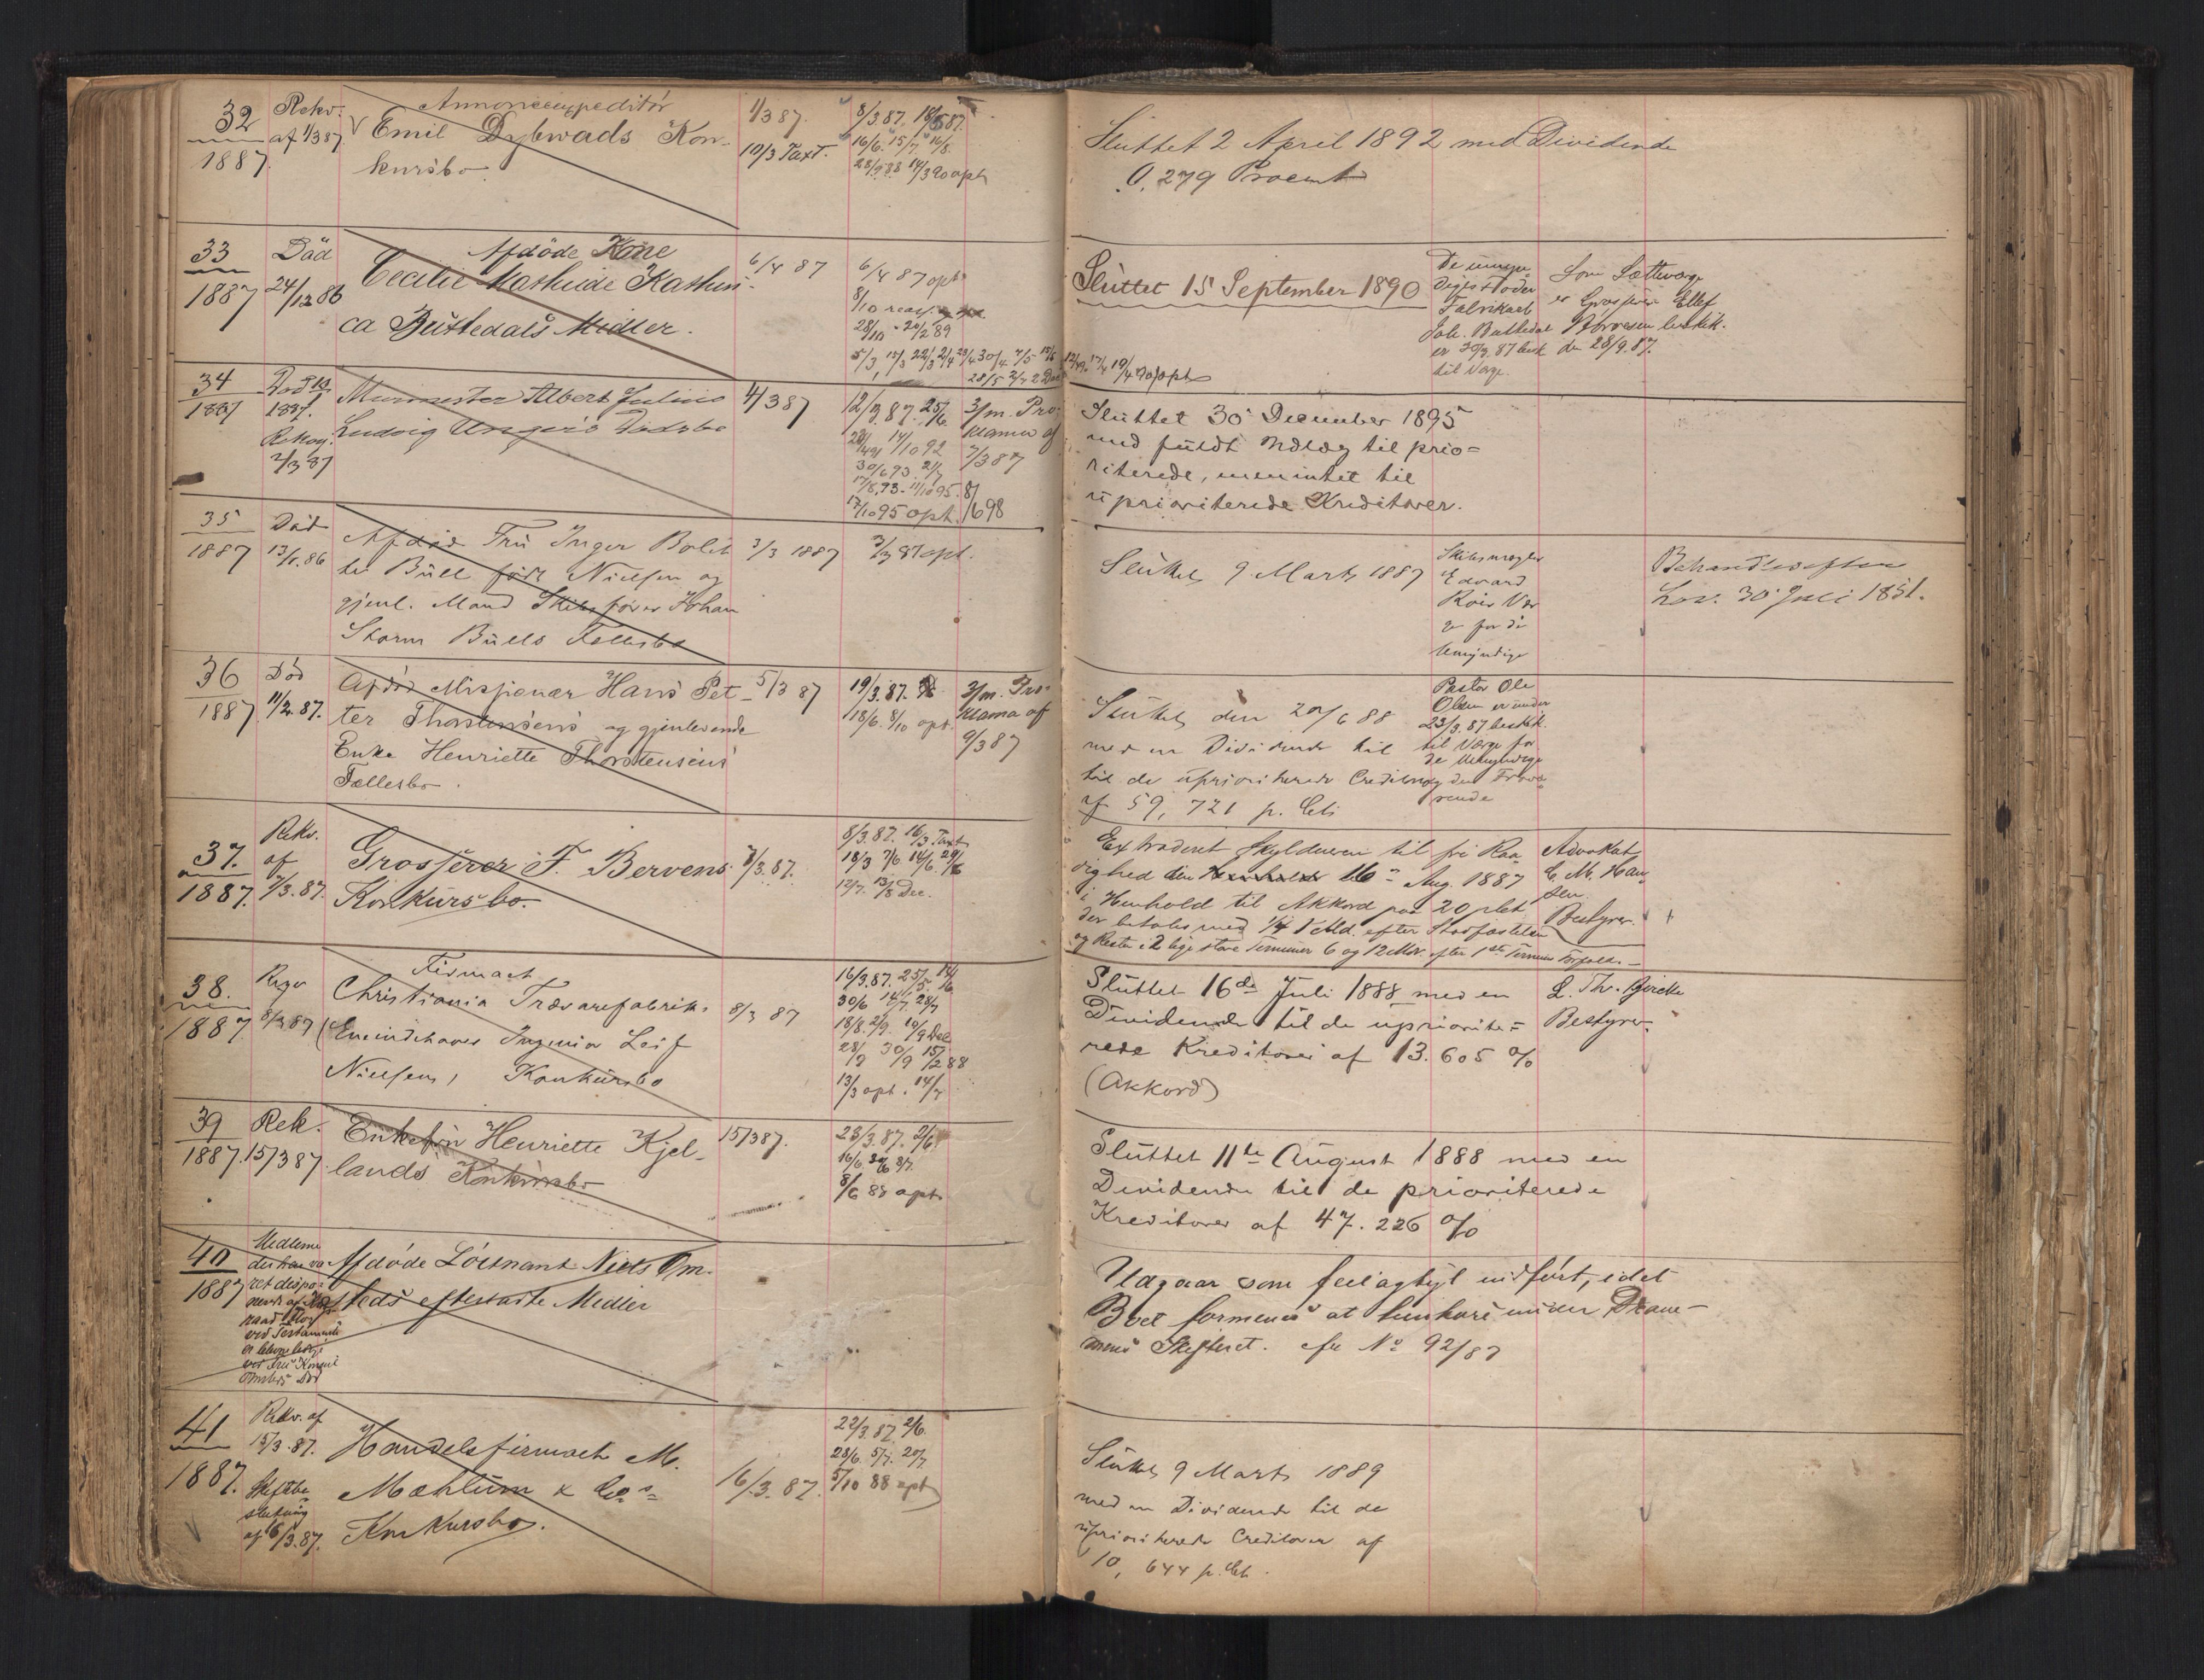 32
1887
Rekv:
af 1/3 87
Annonceexpeditör
Emil Dybwads Kon-
kursbo
1/3 87.
10/3 Taxt.
8/3 87. 18/5 87.
16/6. 15/7. 16/8.
28/9 88 14/3 90 opt
Sluttet 2 April 1892 med Dividende
0,279 Procent
33
1887
Död
24/12 86
Afdöde Kone
Cecilie Mathilde Kathin-
ca Buttedals Midler.
6/4 87
6/4 87 opt
8/10
28/10 - 20/2 89
28/5 2/7 2 Dec
Sluttet 15 September 1890
De umyn-
diges Fader
Fabrikaeb
Joh. Buttedal
er 30/3. 87 besk
til Værge.
Som Sætteværge
er Grosserer Ellef
beskik.
den 28/9. 87.
34
1887
Död
1887.
Rekv.
2/3 87
Murmester Albert Julius
Ludvig Ungers Dødsbo
4/3 87
12/3 87. 25/6
14/10 92
30/6 93 2/7
17/8. 93 - 11/10 95.
17/10 95 opt.
3/m. Pro-
klama af
7/3 87
8/
1698
Sluttet 30 December 1895
med fuldt Udlæg til prio=
riterede, men intet til
uprioriterede Kreditorer.
35
1887
Död
13/1. 86
Afdød Fru Inger Bolet-
te Büll født Nielsen og
gjenl. Mand Skibsfører Johan
Storm Bülls Fællesbo
3/3 1887
3/3 87 opt.
Sluttet 9 Marts 1887
Skibsmægler
Edvard
Röer Vær
ge for de
Umyndige
Behandles efter
Lov. 30 Juli 1851.
36
1887
Död
11/2. 87.
Afdød Missionær Hans Pet-
ter Thorstensens og gjenlevende
Enke Henriette Thorstensens
Fællesbo.
5/3 87
19/3. 87.
18/6. 8/10 opt.
3/m. Pro-
klama af
9/3 87
Sluttet den 20/6 88
med en Dividende til
til de uprioriterede Creditorer
af 59,721 p. Ct.
Pastor Ole
Olsen er under
23/3. 87 beskik.
til Værge for
de Umyndige
og den Fravæ-
rende
37.
1887.
Rekv.
af
7/3. 87.
Grosserer F. Bervens
Konkursbo.
7/3. 87.
8/3. 87. 16/3 Taxt
18/3 7/6 14/6. 29/6
12/7. 13/8 Dec.
Extraderet Skyldneren til fri Raa-
dighed den 16de Aug. 1887
i Henhold til Akkord paa 20 pCt
der betales med 1/4 1 Md. efter Stadfæstelsen
og Resten i 2 lige store Terminer 6 og 12 Mdr. efter 1ste Termins Forfald. -
Advokat
C. M. Han-
sen
Bestyrer.
38.
1887
Reqv
8/3 87
Firmaet
Christiania Trævarefabrik.
(Eneindehaver Ingeniør Leif
Nielsen) Konkursbo
8/3 87
16/3. 87. 25/5. 14/6
30/6 14/7. 28/7
18/8. 2/9. 10/9 Del
28/9 30/9 15/2 88
13/3 opt. 14/7
Sluttet 16de Juli 1888 med en
Dividende til de upriorite=
rede Kreditorer af 13.605 %
(Akkord)
L. Th. Gjerche
Bestyrer.
39
1887.
Rek.
15/3 87
Enkefru Henriette Kjel-
lands Konkursbo
15/3 87.
23/3. 87. 2/6.
8/6 88 opt.
Sluttet 11te August 1888 med en
Dividende til de prioriterede
Kreditorer af 47.226 %
40
1887
Midlerne
ved Testamente
Afdøde Löitnant Niels Om-
steds efterladte Midler
Udgaar som feilagtigt indført, idet
Boet formenes at henhøre under Dram-
mens Skifteret. cfr No 92/87
41
1887.
Rekv. af
15/3. 87.
Skiftebe-
slutning
af 16/3. 87.
Handelsfirmaet M.
Mæhlum & Co.s
Konkursbo.
16/3. 87.
22/3. 87. 2/6.
28/6. 5/7. 20/7
5/10 88 opt
Sluttet 9 Marts 1889
med en Dividende til de
uprioriterede Creditorer af
10,644 p. Ct.